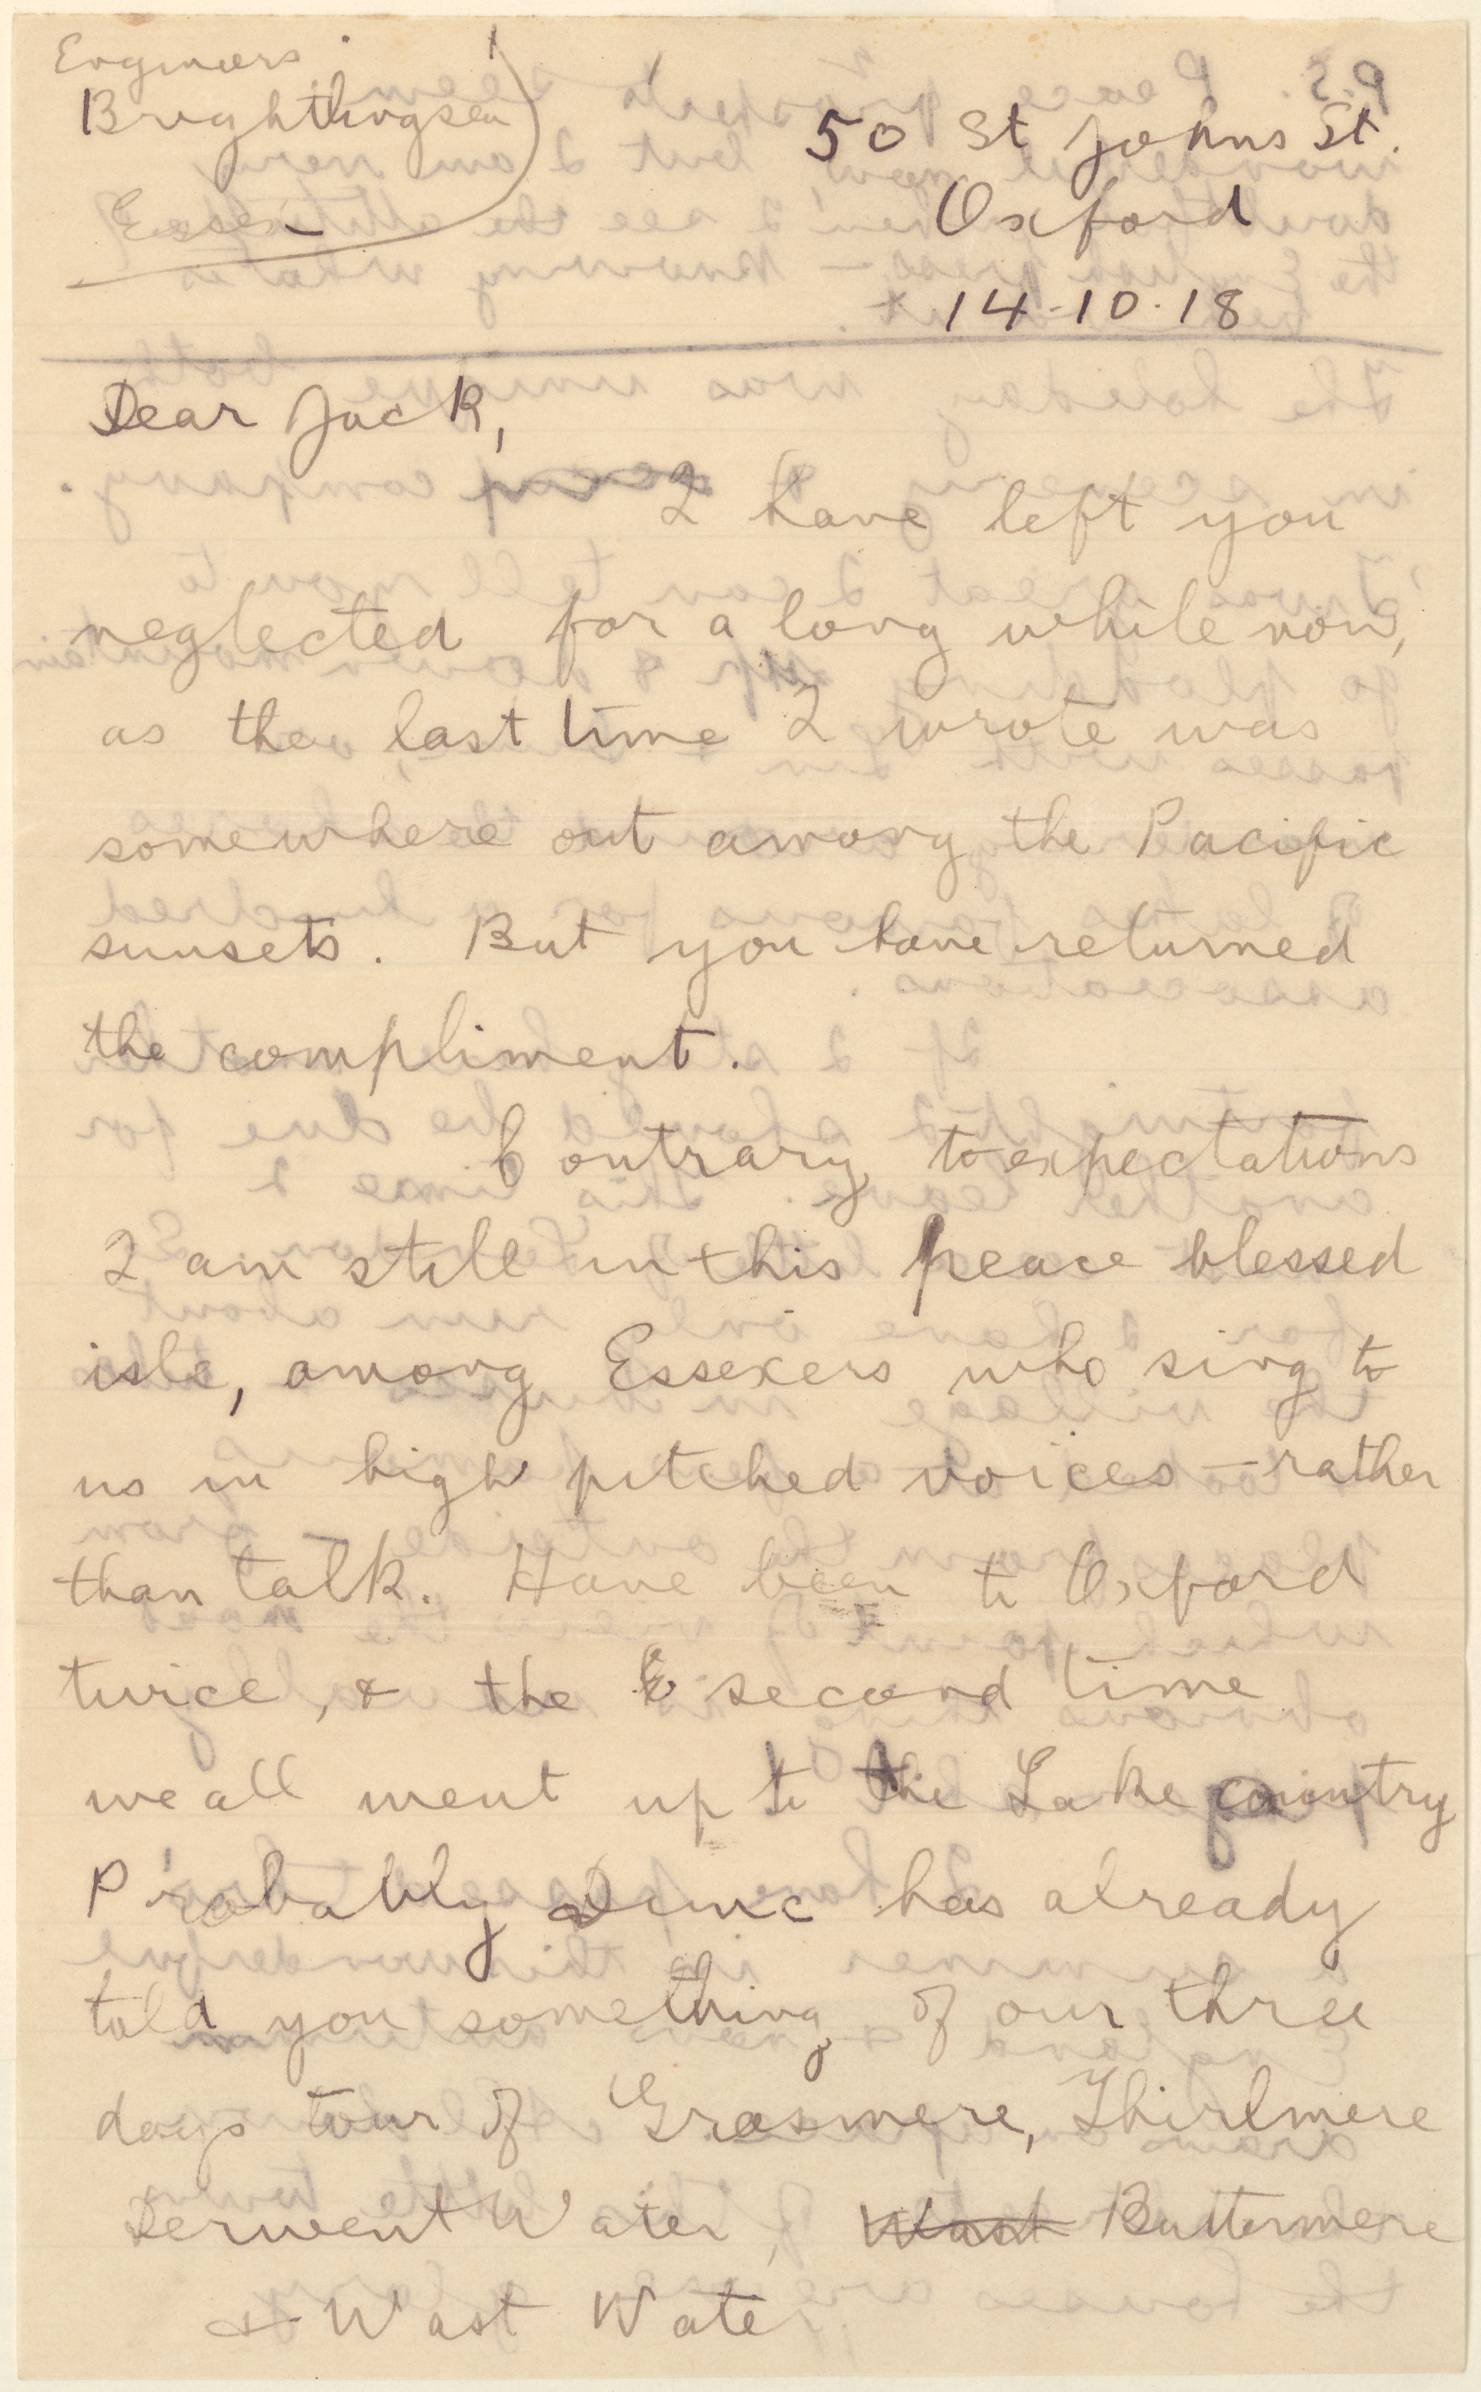 Engineers
Brightlingsea
Essex
50 St Johns St.
Oxford
14-10-18
Dear Jack,
I have left you
neglected for a long while now,
as the last time I wrote was
somewhere out among the Pacific
sunsets. But you have returned
the compliment.
Contrary to expectations
I am still in this peace blessed
isle, among Essexers who sing to
us in high pitched voices — rather
than talk. Have been to Oxford
twice, & the second time
we all went up to the Lake country
Probably has already
told you something of our three
days tour of Grasmere, Thirlmere
Derwent Water, Wast Buttermere
& Wast Water